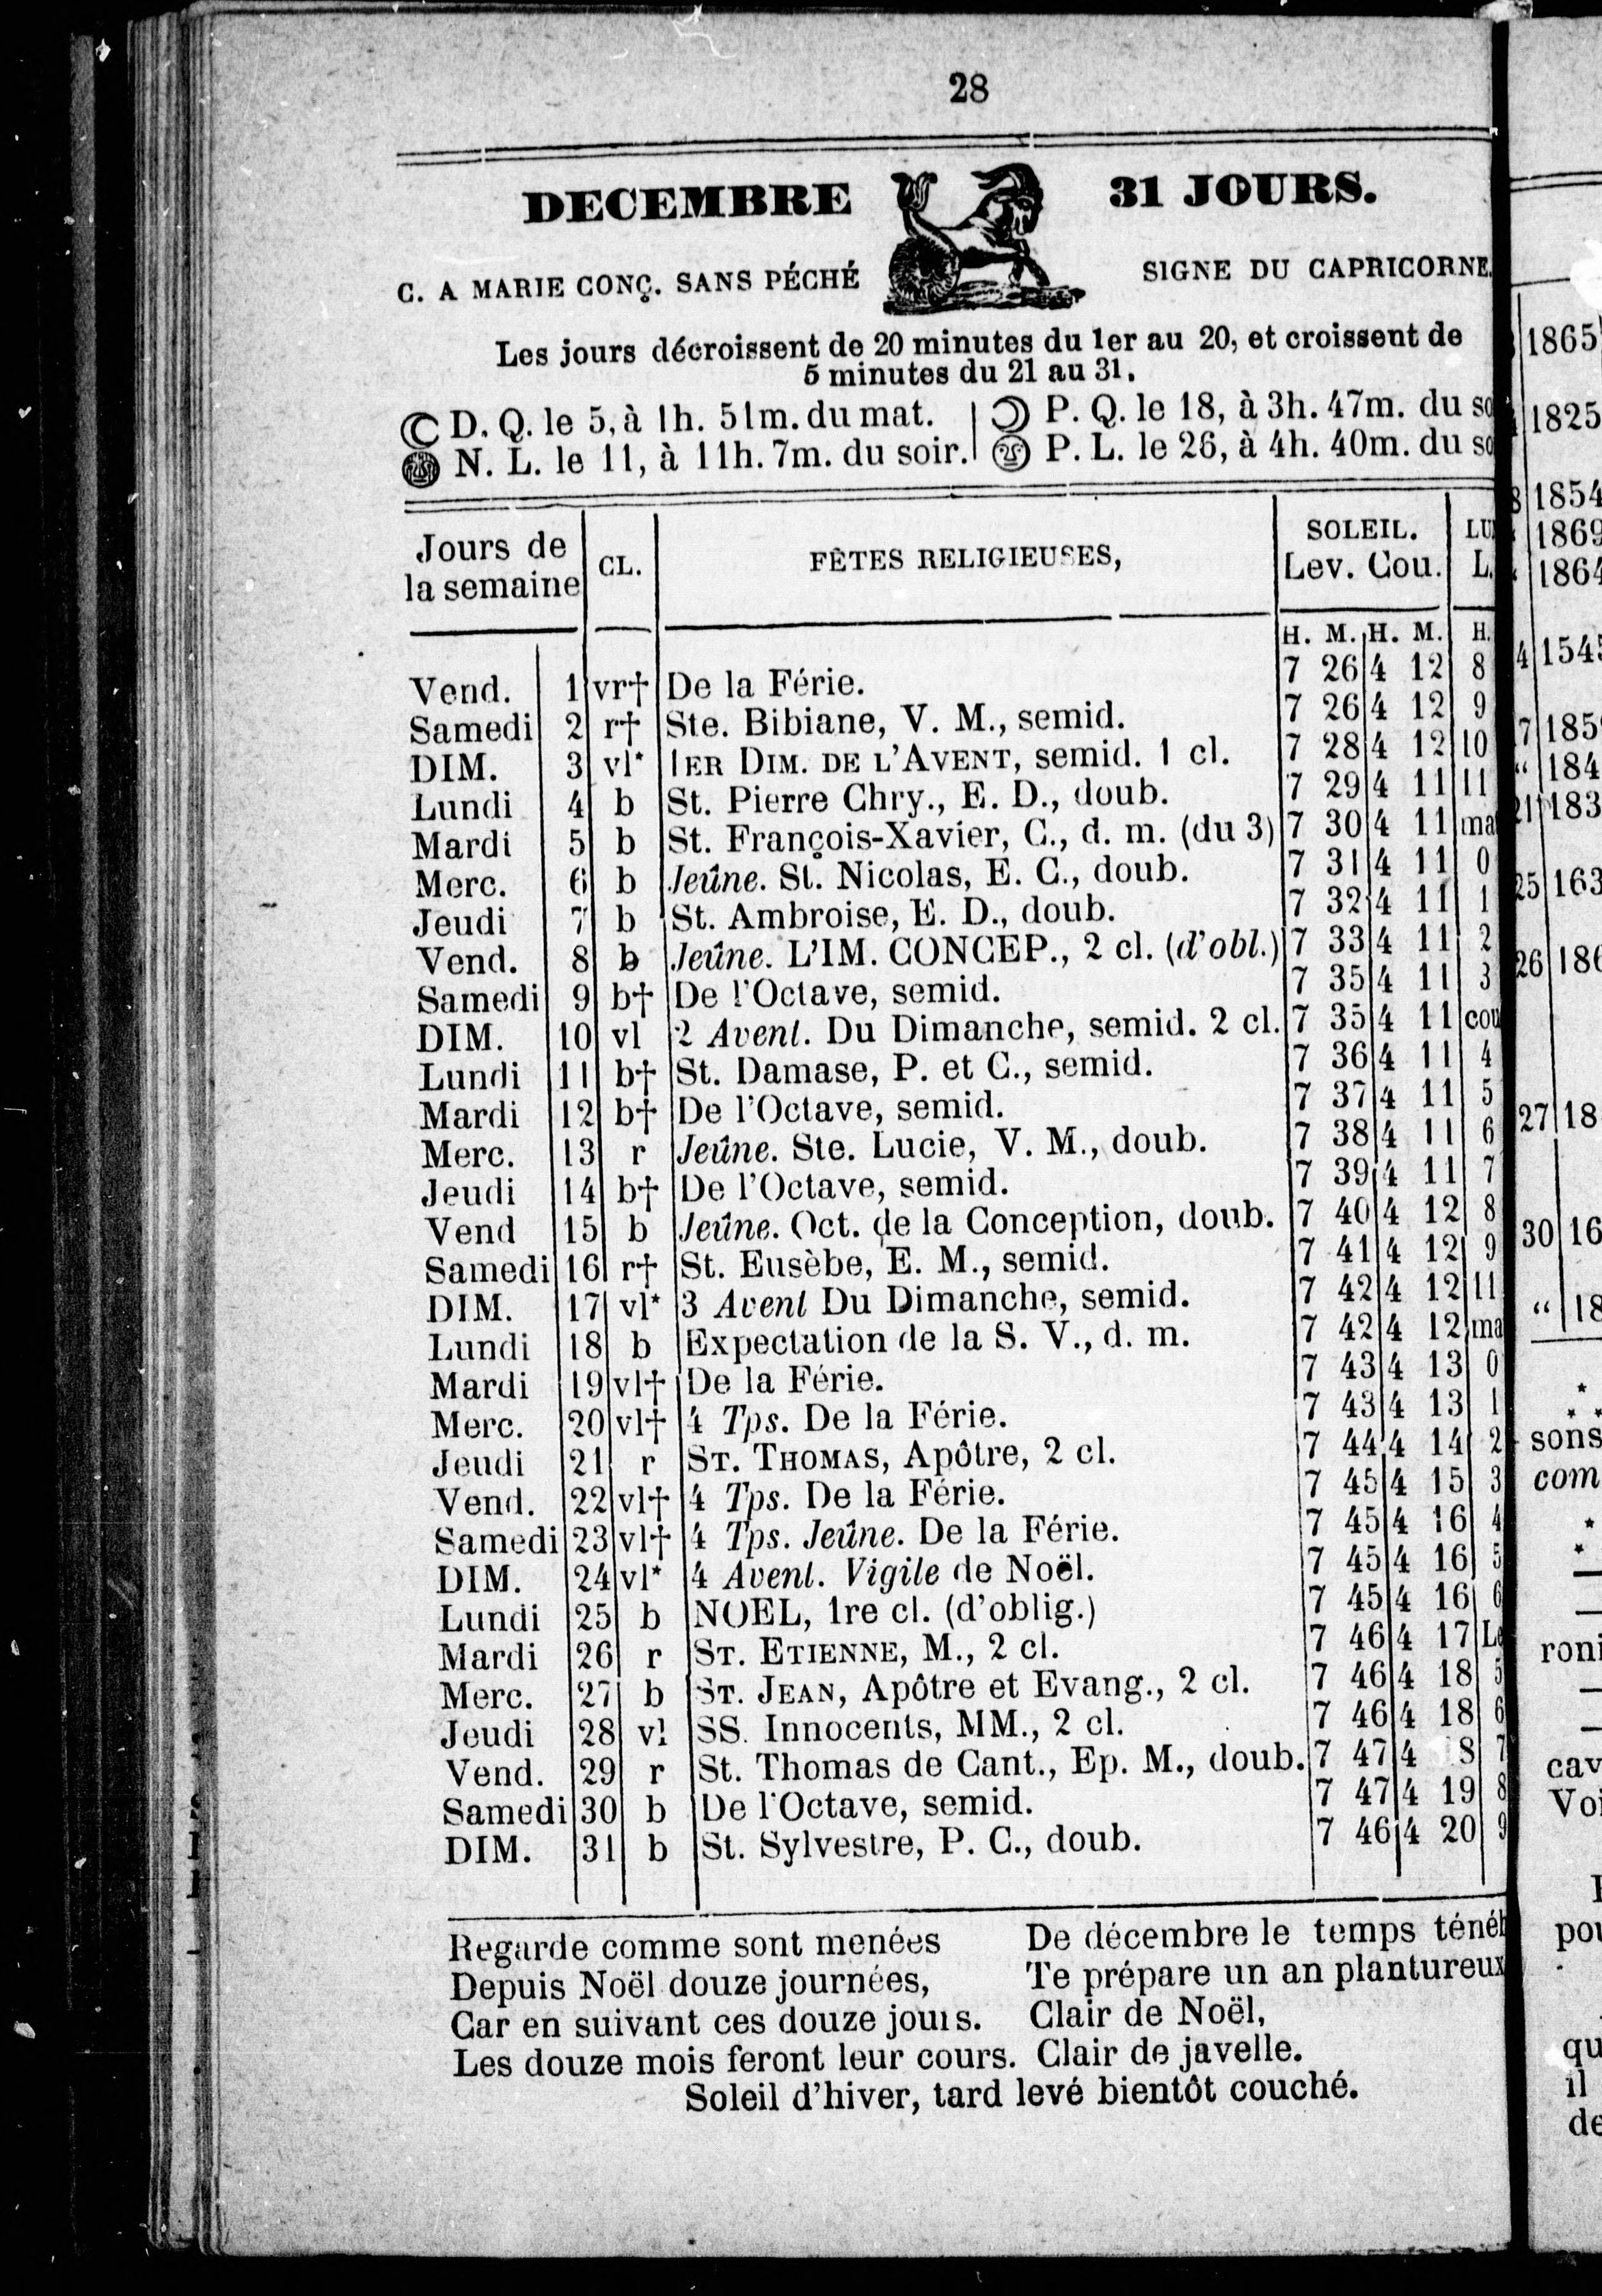 28
DECEMBRE 31 JOURS.
C. A MARIE CONÇ. SANS PÉCHÉ SIGNE DU CAPRICORNE.
Les jours décroissent de 20 minutes du 1er au 20, et croissent de
5 minutes du 21 au 31.
D. Q. le 5, à 1h. 51m. du mat. P. Q. le 18, à 3h. 47m. du
N. L. le 11, à 11h. 7m. du soir. P. L. le 26, à 4h. 40m. du
Jours de la semaine CL. FÊTES RELIGIEUSES, SOLEIL. Lev. Cou. L.
H. M. H. M. H.
Vend. 1 vr† De la Férie. 7 26 4 12 8
Samedi 2 r† Ste. Bibiane, V. M., semid. 7 26 4 12 9
DIM. 3 vl* 1ER DIM. DE L'AVENT, semid. 1 cl. 7 28 4 12 10
Lundi 4 b St. Pierre Chry., E. D., doub. 7 29 4 11 11
Mardi 5 b St. François-Xavier, C., d. m. (du 3) 7 30 4 11 ma
Merc. 6 b Jeûne. St. Nicolas, E. C., doub. 7 31 4 11 0
Jeudi 7 b St. Ambroise, E. D., doub. 7 32 4 11 1
Vend. 8 b Jeûne. L'IM. CONCEP., 2 cl. (d'obl.) 7 33 4 11 2
Samedi 9 b† De l'Octave, semid. 7 35 4 11 3
DIM. 10 vl 2 Avent. Du Dimanche, semid. 2 cl. 7 35 4 11 cou
Lundi 11 b† St. Damase, P. et C., semid. 7 36 4 11 4
Mardi 12 b† De l'Octave, semid. 7 37 4 11 5
Merc. 13 r Jeûne. Ste. Lucie, V. M., doub. 7 38 4 11 6
Jeudi 14 b† De l'Octave, semid. 7 39 4 11 7
Vend 15 b Jeûne. Oct. de la Conception, doub. 7 40 4 12 8
Samedi 16 r† St. Eusèbe, E. M., semid. 7 41 4 12 9
DIM. 17 vl* 3 Avent Du Dimanche, semid. 7 42 4 12 11
Lundi 18 b Expectation de la S. V., d. m. 7 42 4 12 ma
Mardi 19 vl† De la Férie. 7 43 4 13 0
Merc. 20 vl† 4 Tps. De la Férie. 7 43 4 13 1
Jeudi 21 r ST. THOMAS, Apôtre, 2 cl. 7 44 4 14 2
Vend. 22 vl† 4 Tps. De la Férie. 7 45 4 15 3
Samedi 23 vl† 4 Tps. Jeûne. De la Férie. 7 45 4 16 4
DIM. 24 vl* 4 Avent. Vigile de Noël. 7 45 4 16 5
Lundi 25 b NOEL, 1re cl. (d'oblig.) 7 45 4 16 6
Mardi 26 r ST. ETIENNE, M., 2 cl. 7 46 4 17 Le
Merc. 27 b ST. JEAN, Apôtre et Evang., 2 cl. 7 46 4 18 5
Jeudi 28 vl SS. Innocents, MM., 2 cl. 7 46 4 18 6
Vend. 29 r St. Thomas de Cant., Ep. M., doub. 7 47 4 8 7
Samedi 30 b De l'Octave, semid. 7 47 4 19 8
DIM. 31 b St. Sylvestre, P. C., doub. 7 46 4 20 9
Regarde comme sont menées
Depuis Noël douze journées,
Car en suivant ces douze jours.
Les douze mois feront leur cours.
De décembre le temps
Te prépare un an plantureux
Clair de Noël,
Clair de javelle.
Soleil d'hiver, tard levé bientôt couché.
1865
1825
1854
1869
1864
30 16
sons
com
roni
cav
Voi
qu
il
de